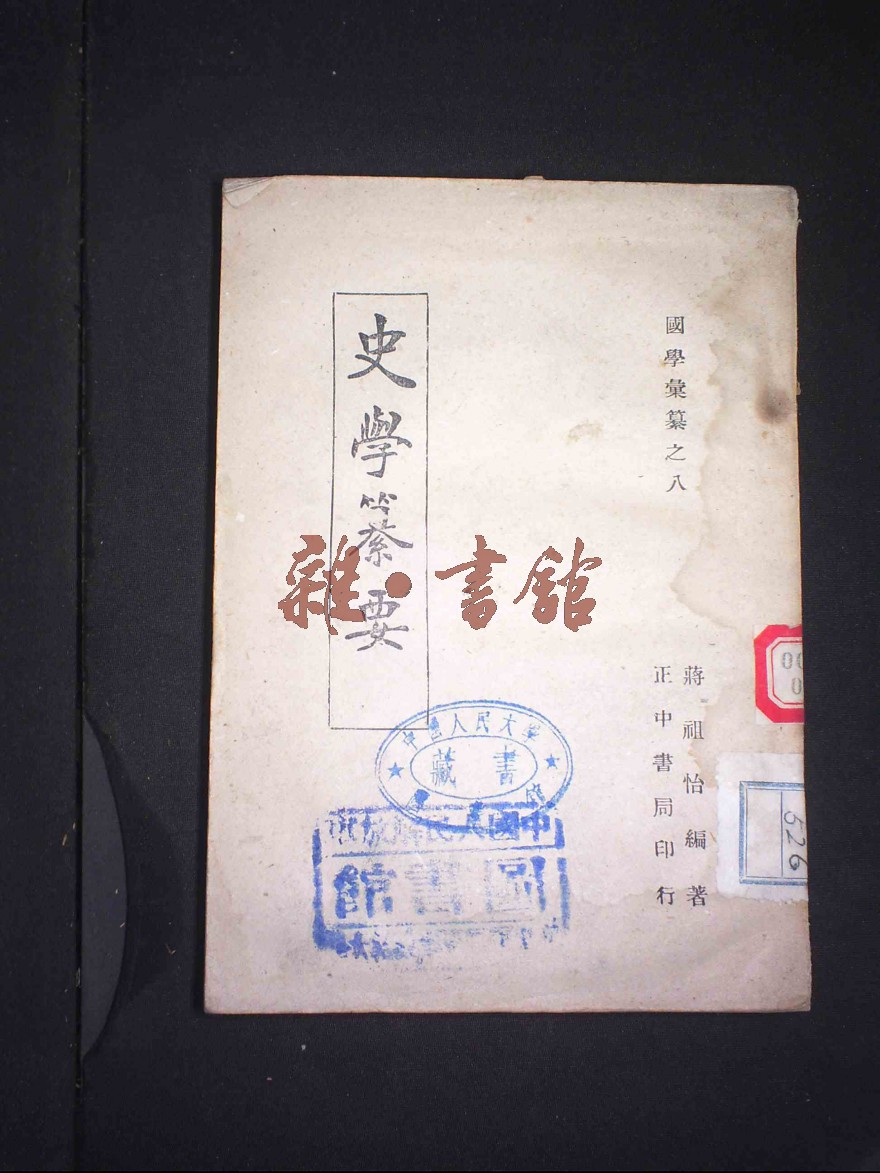 國學彙纂之八
史學纂要
蔣祖怡編著
正中書局印行
雜·書館
中國人民大學
藏書
中國人民解放軍
圖書館
526